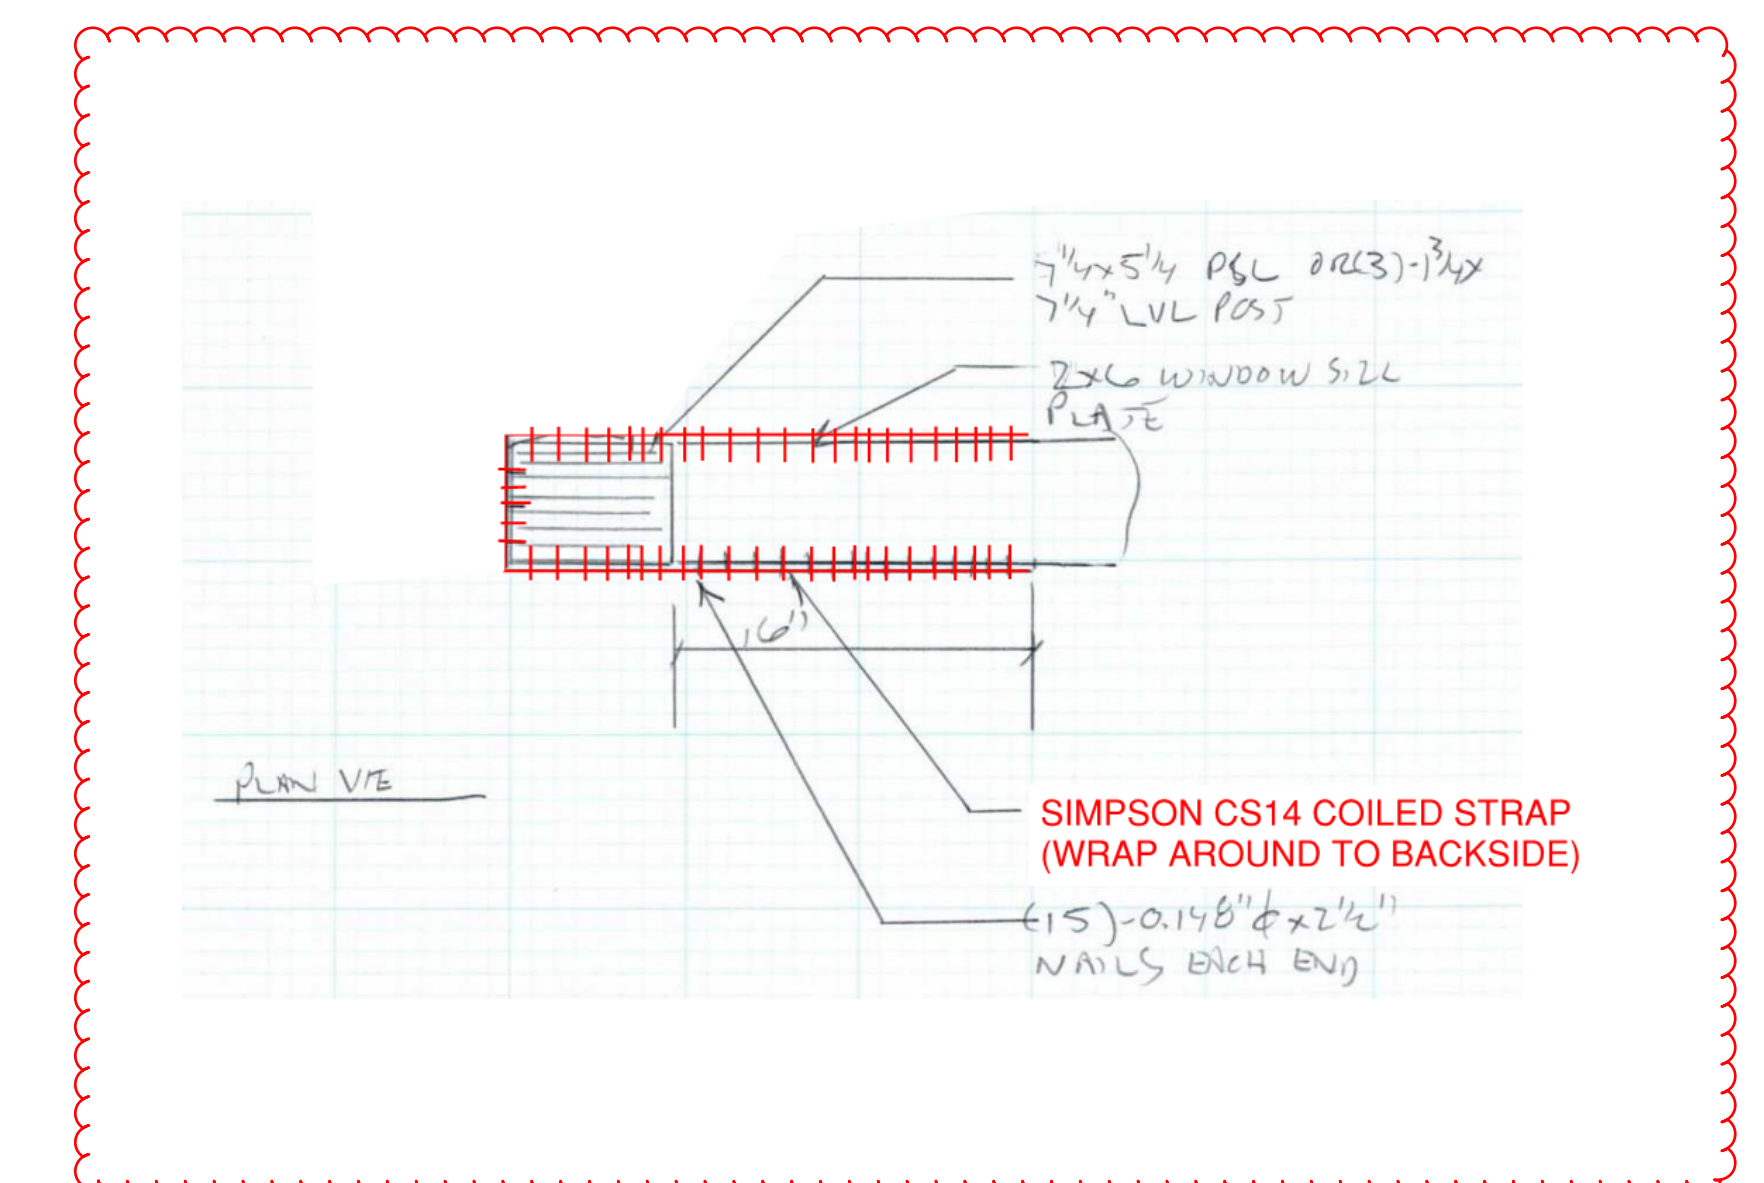 7 1/4 x 5 1/4 PSL OR (3)-1 3/4 x
7 1/4" LVL POST
2x6 WINDOW SILL
PLATE
16"
PLAN VIE
SIMPSON CS14 COILED STRAP
(WRAP AROUND TO BACKSIDE)
(15)-0.148"ϕ x 2 1/2"
NAILS EACH END